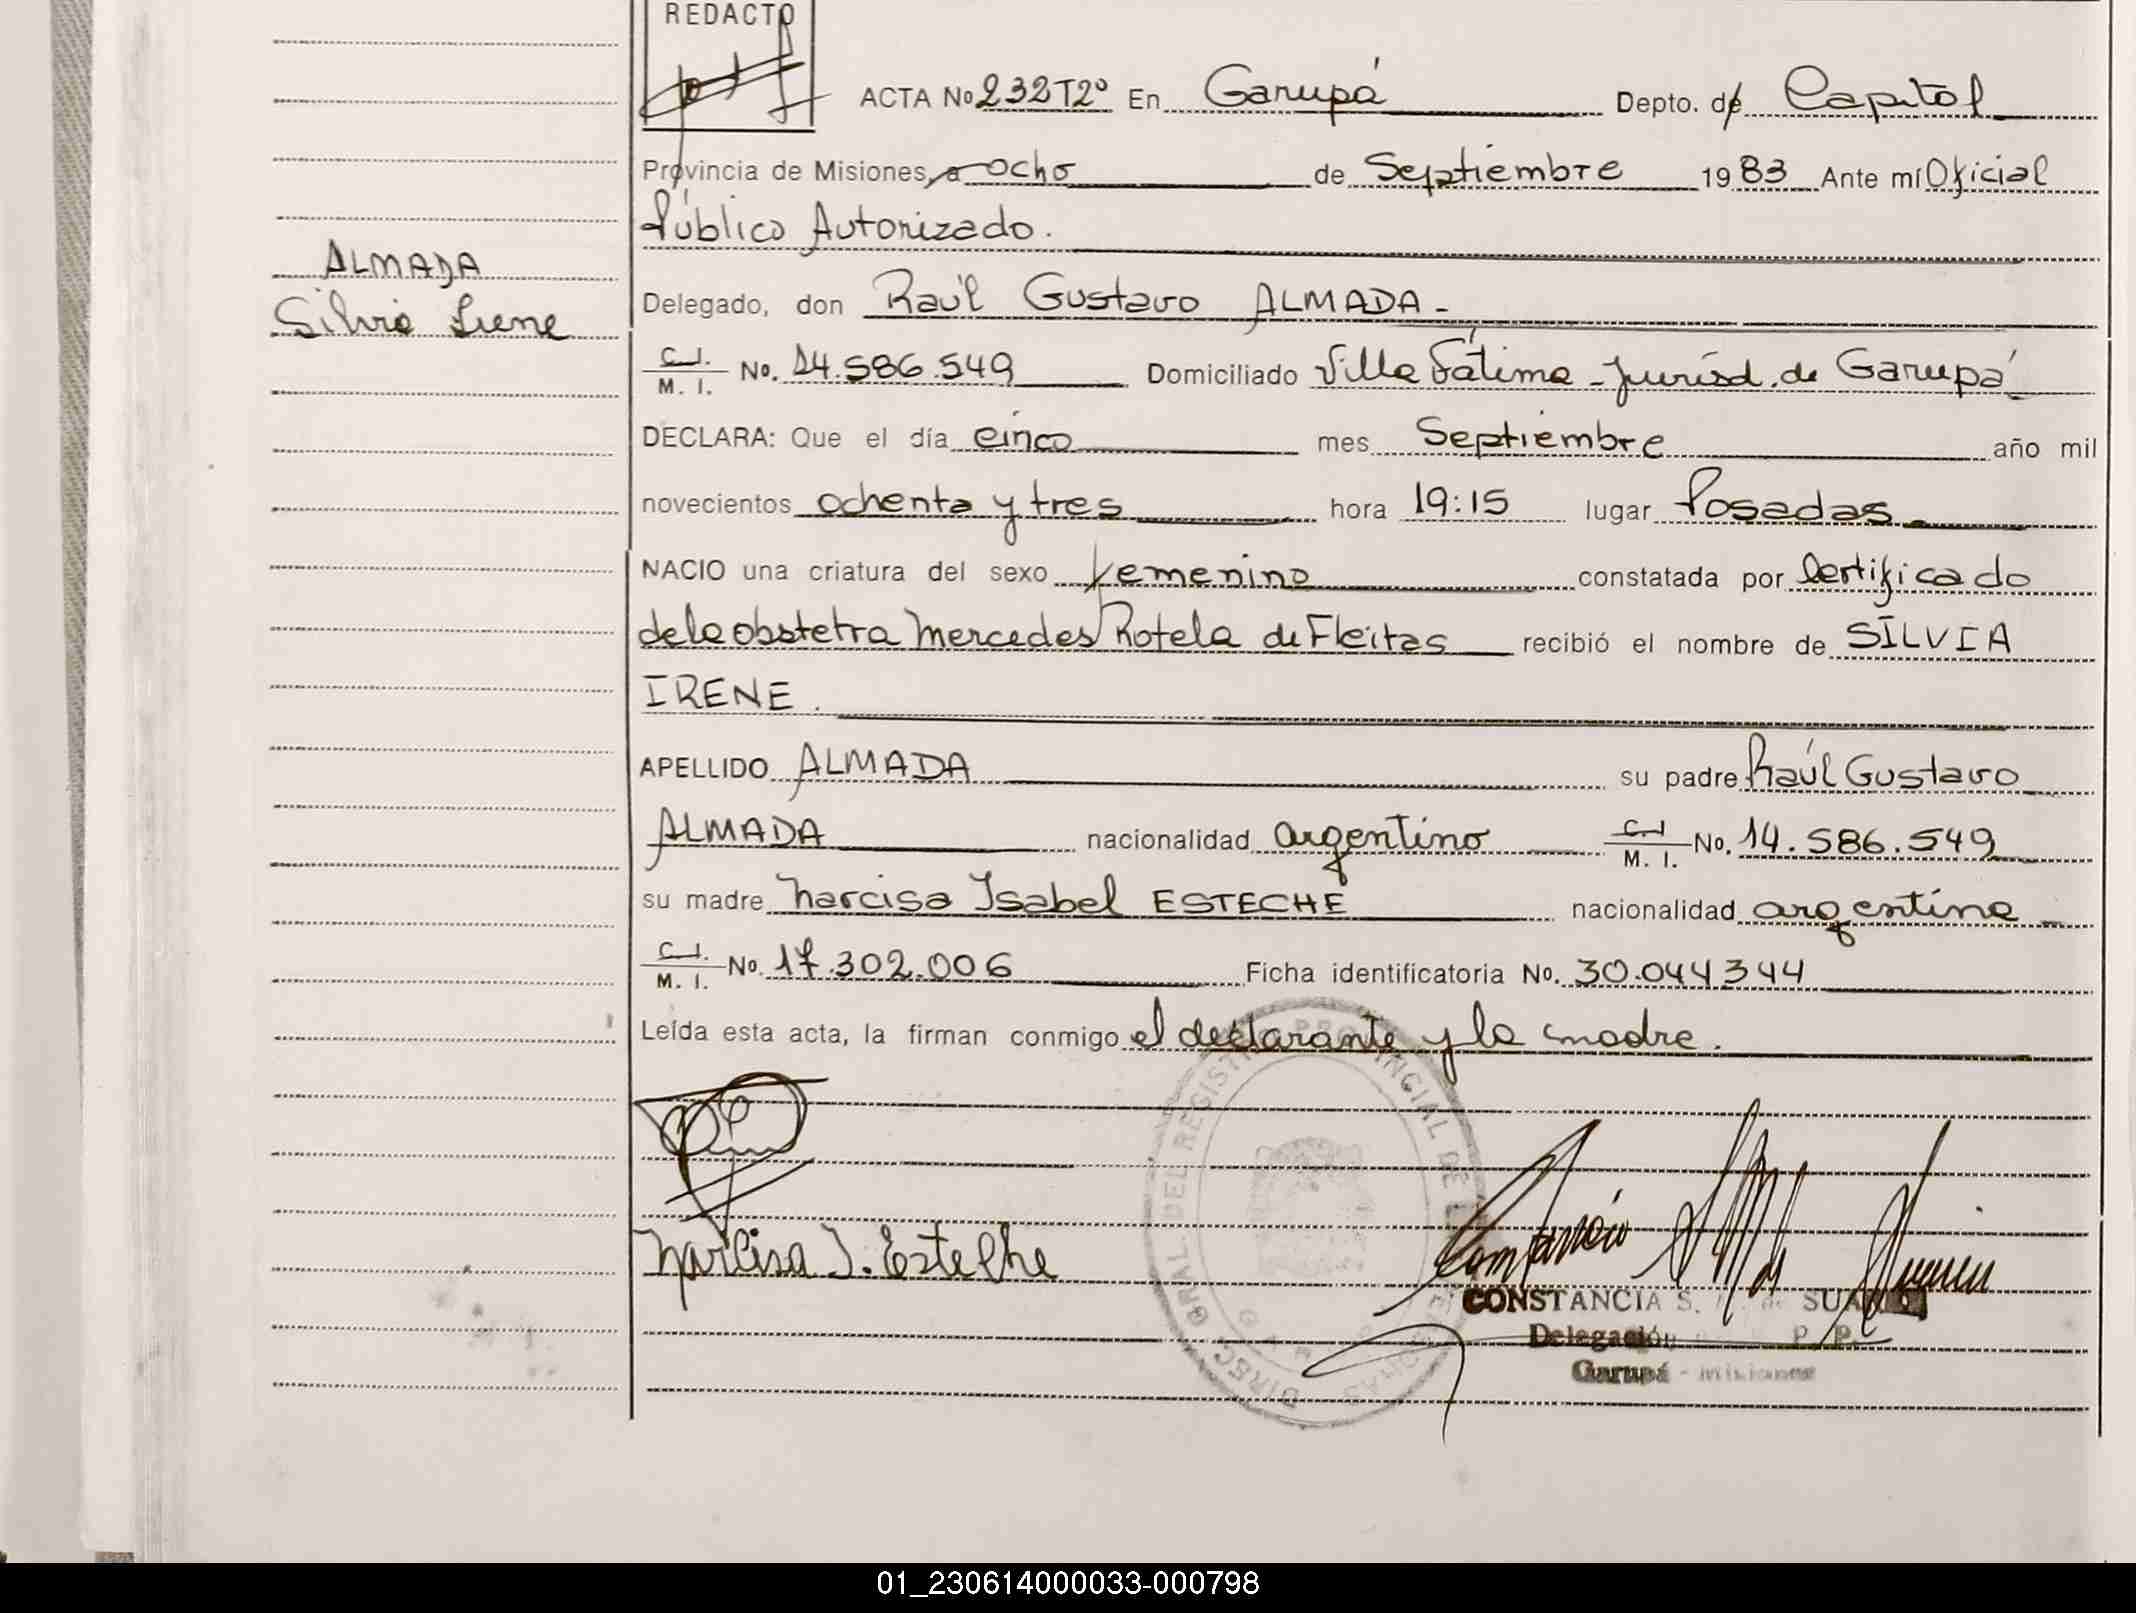 REDACTO
ACTA No 232T2º En Garupá Depto. de Capital
Provincia de Misiones, a ocho de Septiembre 1983 Ante mí Oficial
Público Autorizado.
ALMADA
Silvia Irene
Delegado, don Raúl Gustavo ALMADA -
C.I. M. I. No. 14.586.549 Domiciliado Villa Fátima - Jurisd. de Garupá
DECLARA: Que el día cinco mes Septiembre año mil
novecientos ochenta y tres hora 19:15 lugar Posadas
NACIO una criatura del sexo femenino constatada por Certificado
de la obstetra Mercedes Rotela de Fleitas recibió el nombre de SILVIA
IRENE.
APELLIDO ALMADA su padre Raúl Gustavo
ALMADA nacionalidad argentino C.I. M. I. No. 14.586.549
su madre Narcisa Isabel ESTECHE nacionalidad argentina
C.I. M. I. No. 17.302.006 Ficha identificatoria No. 30.044344
Leída esta acta, la firman conmigo el declarante y la madre.
DIREC. GRAL. DEL REGISTRO PROVINCIAL DE LAS PERSONAS
Narcisa I. Esteche
CONSTANCIA S.
Delegación
Garupá - Misiones
01_230614000033-000798